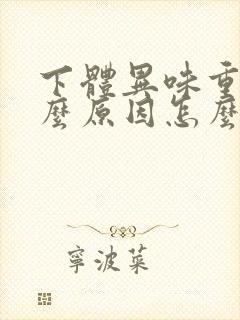 下體異味重
麼原因怎麼
寧波菜